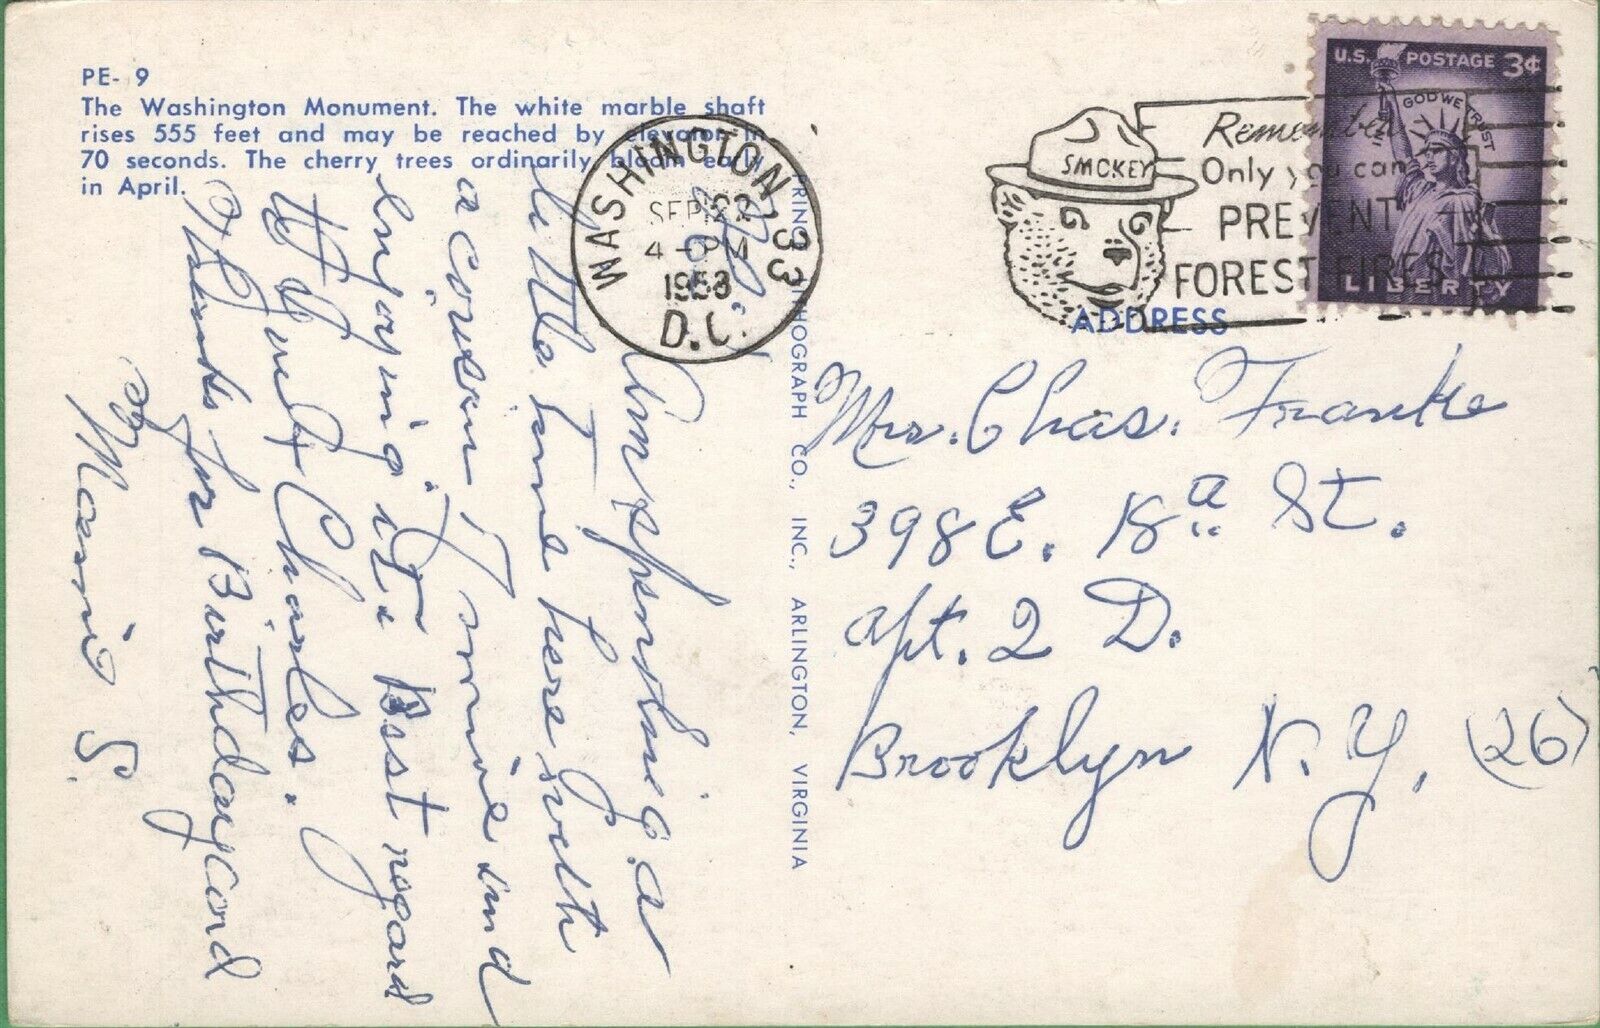 PE- 9
The Washington Monument. The white marble shaft
rises 555 feet and may be reached by elevator in
70 seconds. The cherry trees ordinarily bloom early
in April.
WASHINGTON, 33
SEP 22
4 - PM
D.C.
SMOKEY
Remember
Only you can
PREVENT
FOREST FIRES
U.S. POSTAGE 3¢
IN GOD WE TRUST
LIBERTY
ADDRESS
Mrs. Chas. Franke
398 E. 18 a St.
Apt. 2 D.
Brooklyn N.Y. (26)
LITHOGRAPH CO., INC., ARLINGTON, VIRGINIA
Am spending a
little time here with
a cousin of mine and
enjoying it. Best regard
to you & Charles.
Thanks for Birthdaycard
Mamie S.